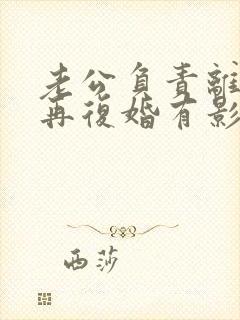 老公負責離
再復婚有影
西莎